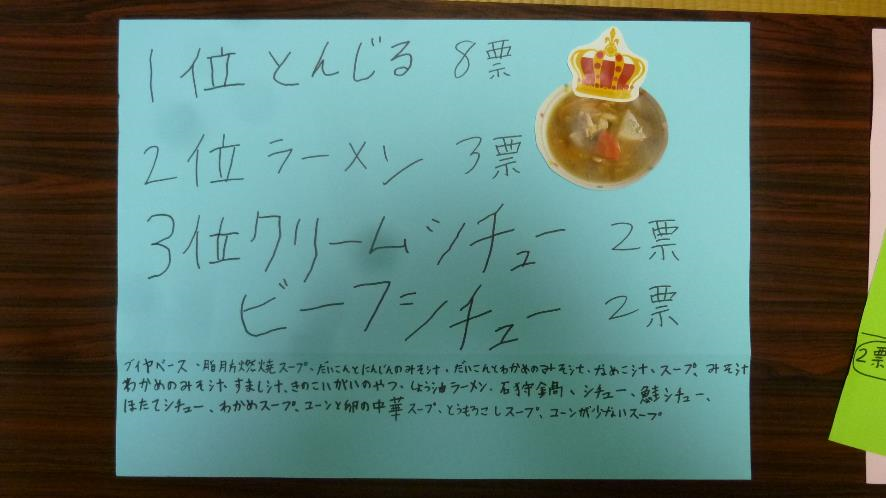 1位 とんじる 8票
2位 ラーメン 3票
3位 クリームシチュー 2票
ビーフシチュー 2票
ブイヤベース、脂肪燃焼スープ、だいこんとにんじんのみそ汁、だいこんとわかめのみそ汁、なめこ汁、スープ、みそ汁
わかめのみそ汁、すまし汁、きのこいがいのやつ、しょう油ラーメン、石狩鍋、シチュー、鮭シチュー、
ほたてシチュー、わかめスープ、コーンと卵の中華スープ、とうもろこしスープ、コーンが少ないスープ
2票